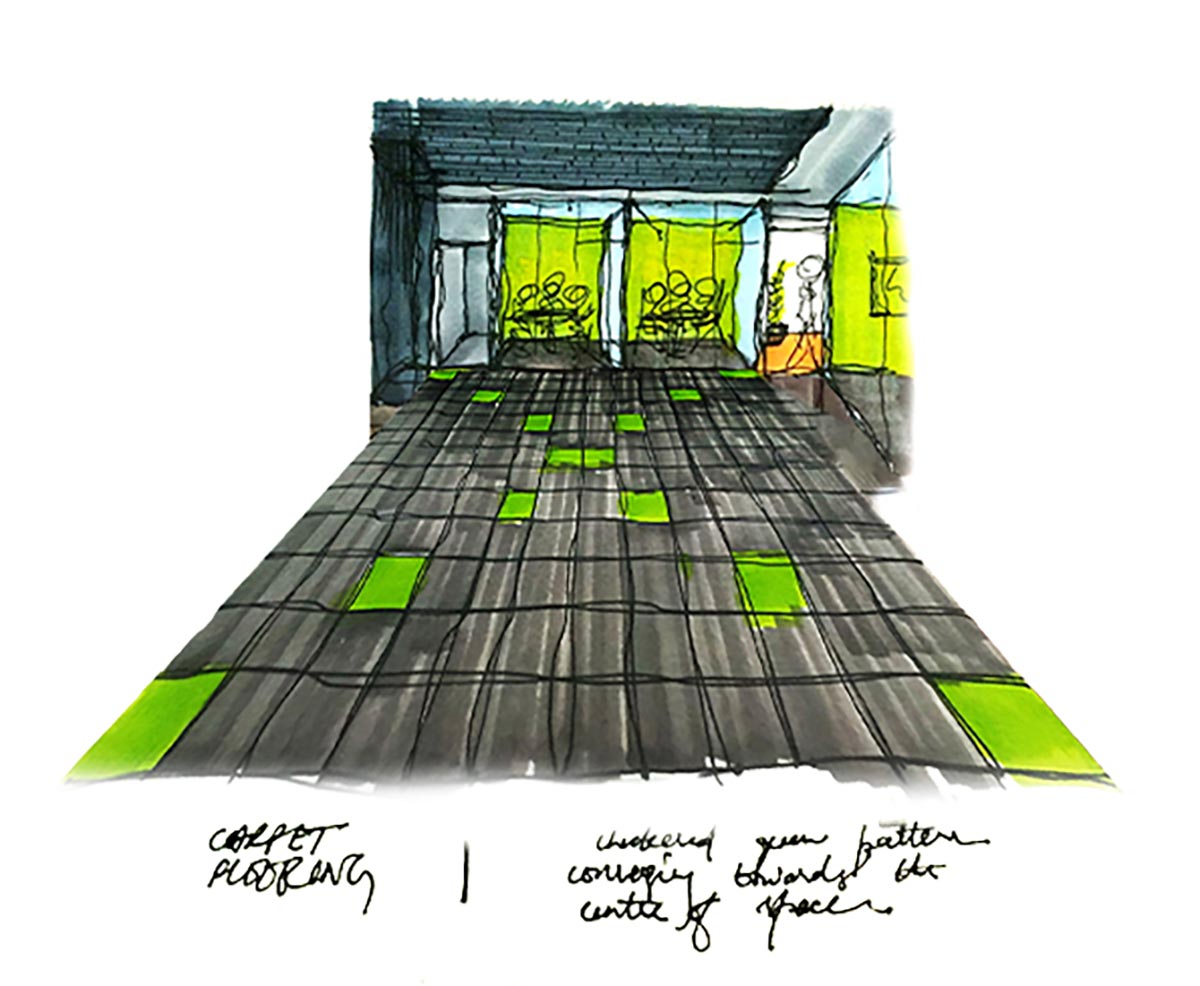 CARPET
FLOORING
checkered green pattern
converging towards the
centre of space